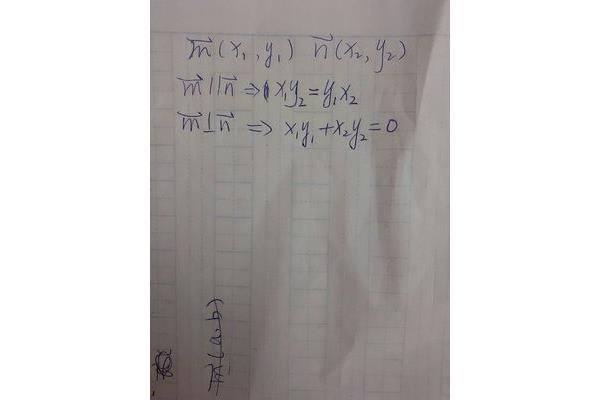 m⃗(x₁,y₁) n⃗(x₂,y₂)
m⃗∥n⃗ ⇒ x₁y₂=y₁x₂
m⃗⊥n⃗ ⇒ x₁y₁+x₂y₂=0
m⃗(a,b)